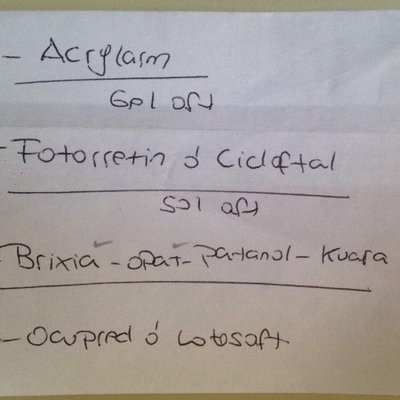 - Acrylarm
Gel oft
- Fotorretin ó Cicloftal
Sol oft
- Brixia - opat - Patanol - Kuara
- Ocupred ó Lotosoft